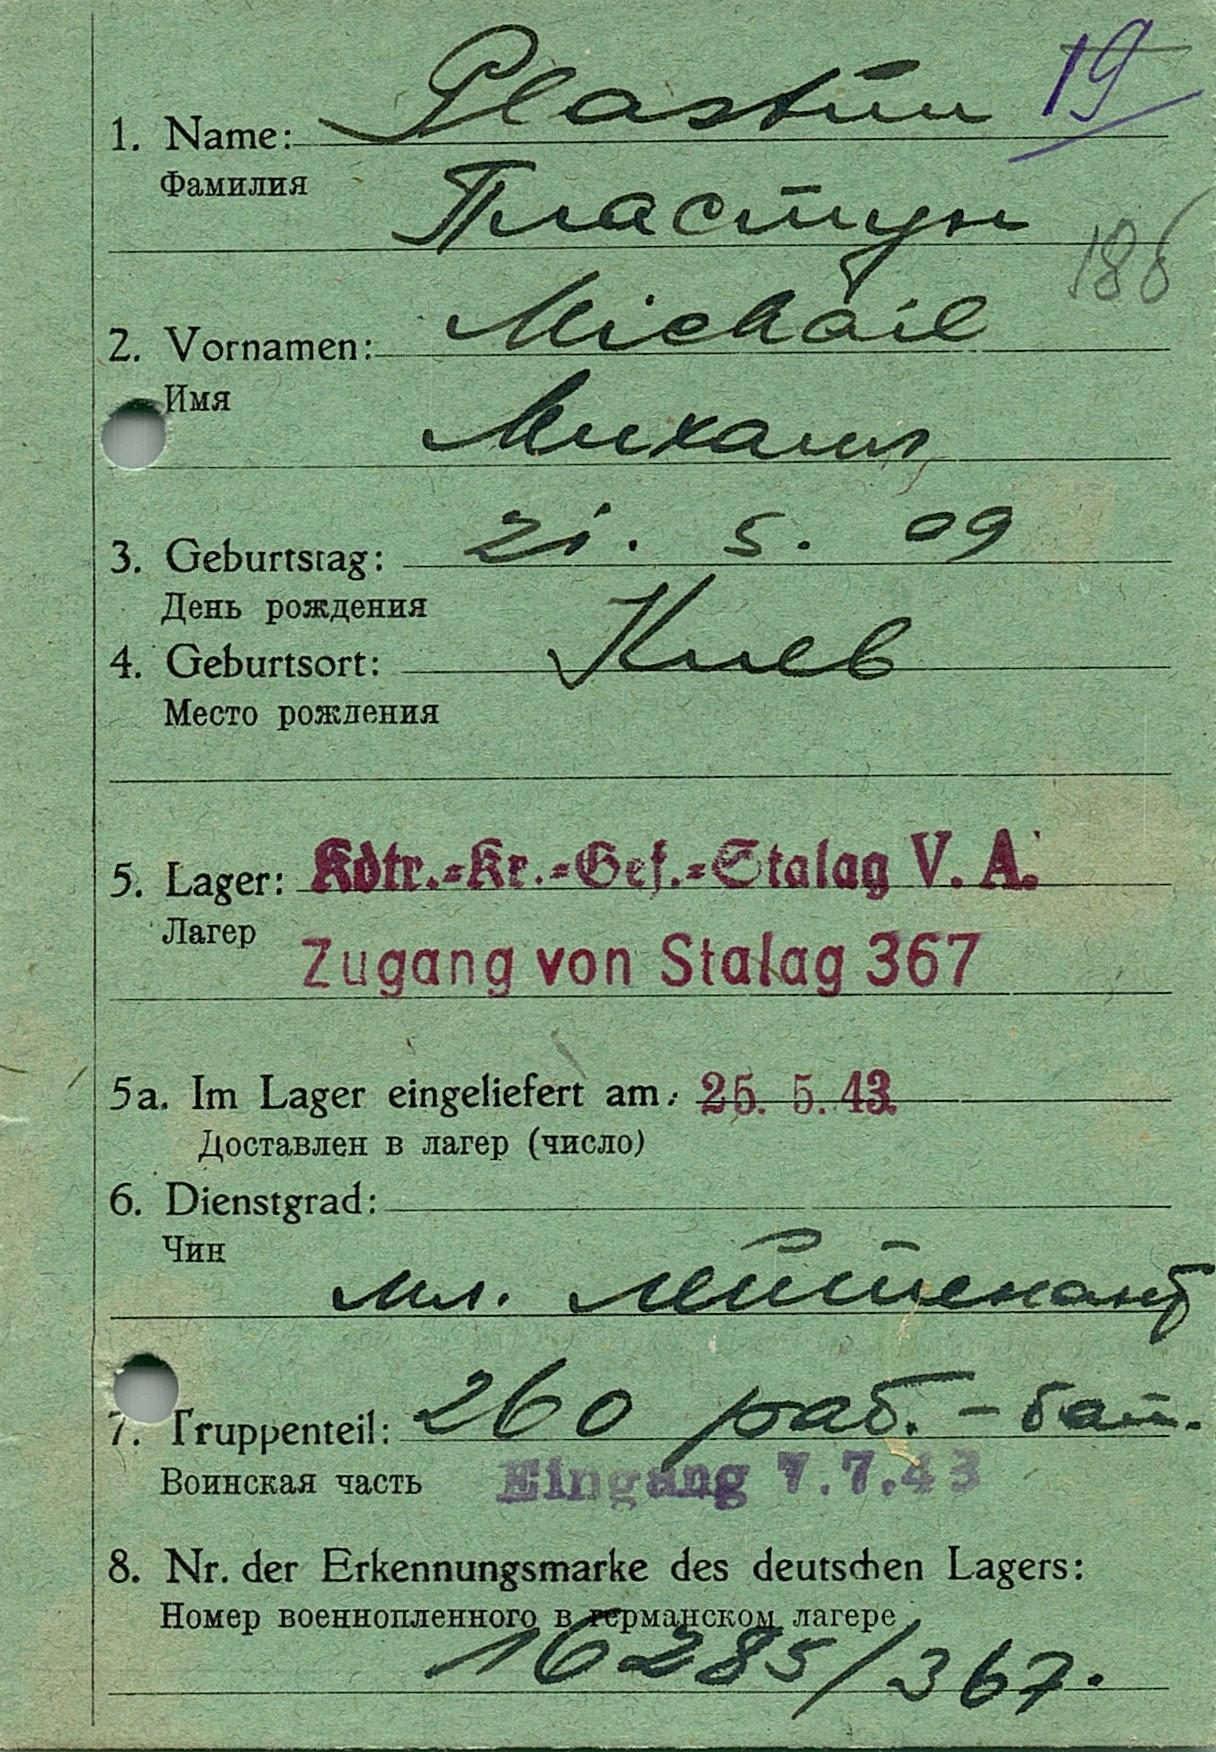 19
1. Name: Plastun
Фамилия
Пластун
186
2. Vornamen: Michail
Имя
Михаил
3. Geburtstag: 21. 5. 09
День рождения
4. Geburtsort: Киев
Место рождения
5. Lager: Kdtr.-Kr.-Gef.-Stalag V. A.
Лагер
Zugang von Stalag 367
5a. Im Lager eingeliefert am: 25. 5. 43.
Доставлен в лагер (число)
6. Dienstgrad:
Чин
мл. лейтенант
7. Truppenteil: 260 раб.-бат.
Воинская часть Eingang 7.7.43
8. Nr. der Erkennungsmarke des deutschen Lagers:
Номер военнопленного в германском лагере
16285/367.